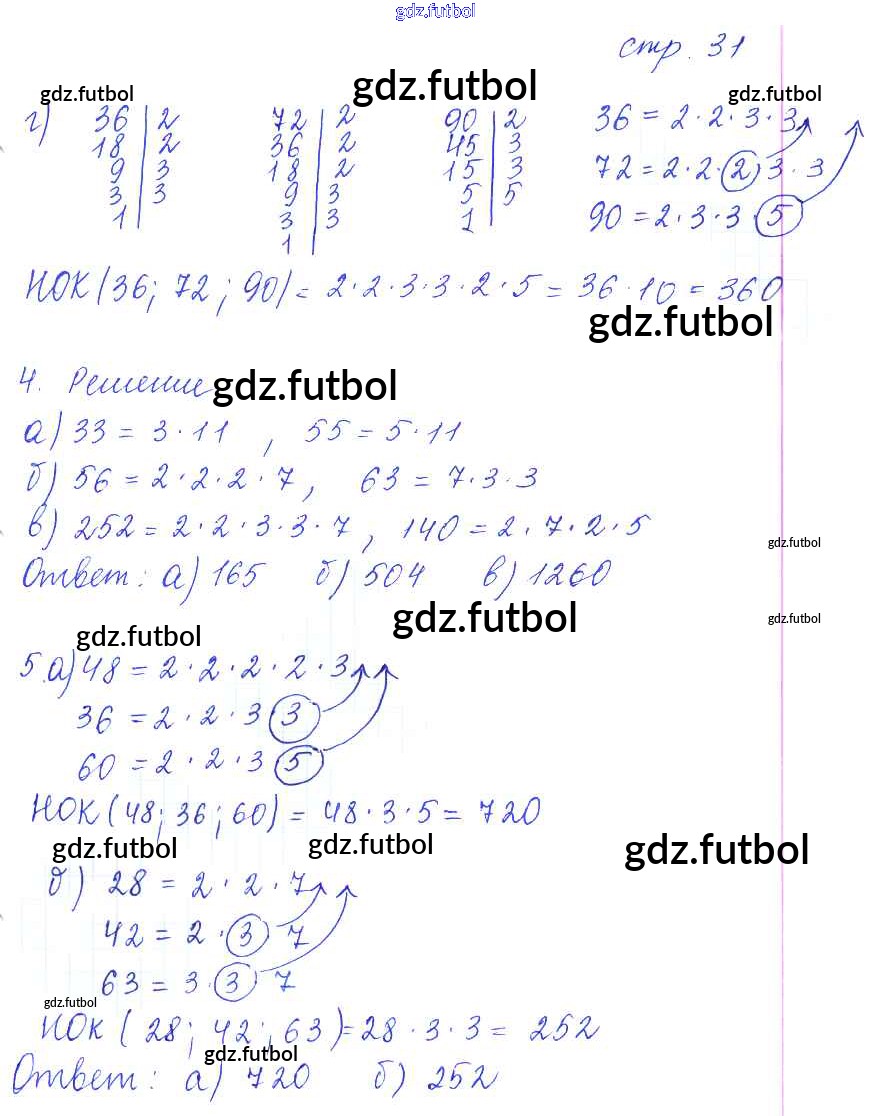 gdz.futbol
стр. 31
gdz.futbol gdz.futbol gdz.futbol
г) 36 | 2 72 | 2 90 | 2 36 = 2 · 2 · 3 · 3
18 | 2 36 | 2 45 | 3 72 = 2 · 2 · 2 · 3 · 3
9 | 3 18 | 2 15 | 3 90 = 2 · 3 · 3 · 5
3 | 3 9 | 3 5 | 5
1 | 3 | 3 1 |
1 |
НОК (36; 72; 90) = 2 · 2 · 3 · 3 · 2 · 5 = 36 · 10 = 360
gdz.futbol
4. Решение gdz.futbol
а) 33 = 3 · 11 , 55 = 5 · 11
б) 56 = 2 · 2 · 2 · 7 , 63 = 7 · 3 · 3
в) 252 = 2 · 2 · 3 · 3 · 7 , 140 = 2 · 7 · 2 · 5
gdz.futbol
Ответ: а) 165 б) 504 в) 1260
gdz.futbol gdz.futbol
gdz.futbol
5. а) 48 = 2 · 2 · 2 · 2 · 3
36 = 2 · 2 · 3 3
60 = 2 · 2 · 3 5
НОК (48; 36; 60) = 48 · 3 · 5 = 720
gdz.futbol gdz.futbol gdz.futbol
б) 28 = 2 · 2 · 7
42 = 2 · 3 7
63 = 3 · 3 7
gdz.futbol
НОК (28; 42; 63) = 28 · 3 · 3 = 252
gdz.futbol
Ответ: а) 720 б) 252